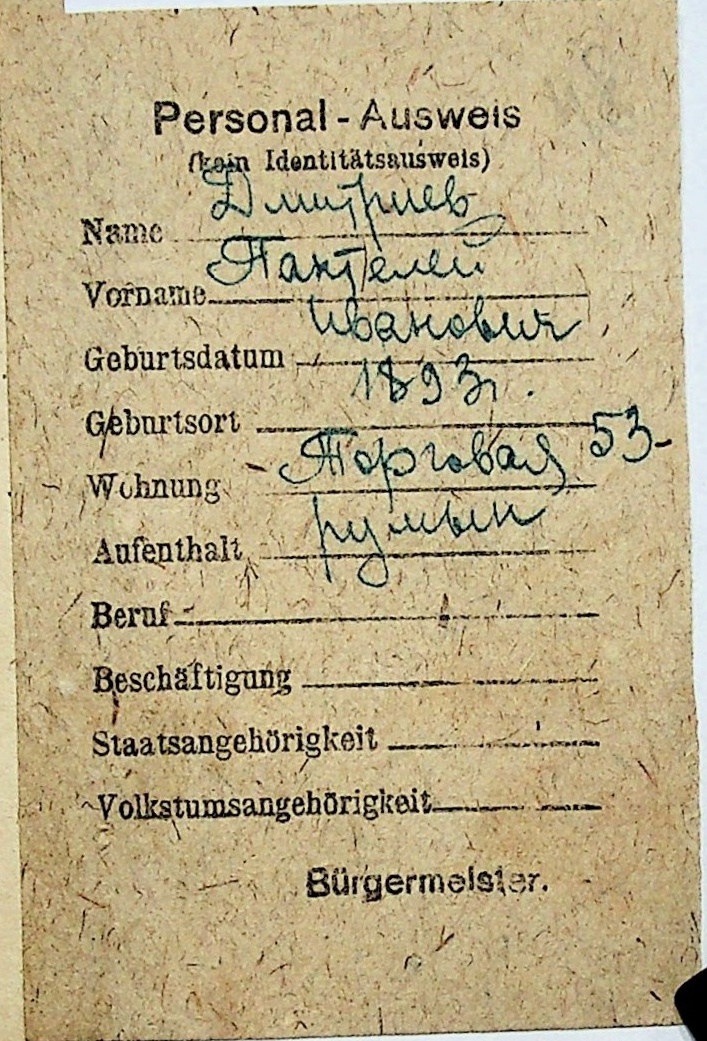 Personal-Ausweis
(kein Identitätsausweis)
Дмитриев
Name
Пантелей
Vorname
Иванович
Geburtsdatum
1893 г.
Geburtsort
Торговая 53-
Wohnung
румын
Aufenthalt
Beruf
Beschäftigung
Staatsangehörigkeit
Volkstumsangehörigkeit
Bürgermeister.